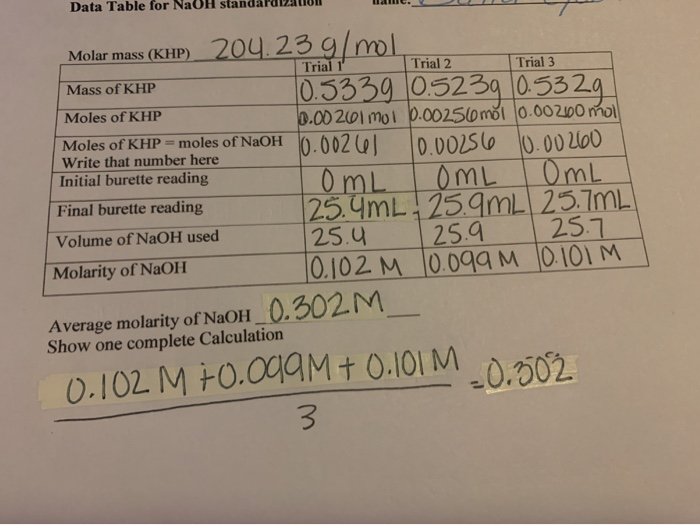 Data Table for NaOH standardization
Molar mass (KHP) 204.23 g/mol
Trial 1 Trial 2 Trial 3
Mass of KHP 0.533g 0.523g 0.532g
Moles of KHP 0.00261 mol 0.00256 mol 0.00260 mol
Moles of KHP = moles of NaOH 0.00261 0.00256 0.00260
Write that number here
Initial burette reading 0mL 0mL 0mL
Final burette reading 25.4mL 25.9mL 25.7mL
Volume of NaOH used 25.4 25.9 25.7
Molarity of NaOH 0.102 M 0.099 M 0.101 M
Average molarity of NaOH 0.302M
Show one complete Calculation
0.102 M + 0.099M + 0.101 M = 0.302
3